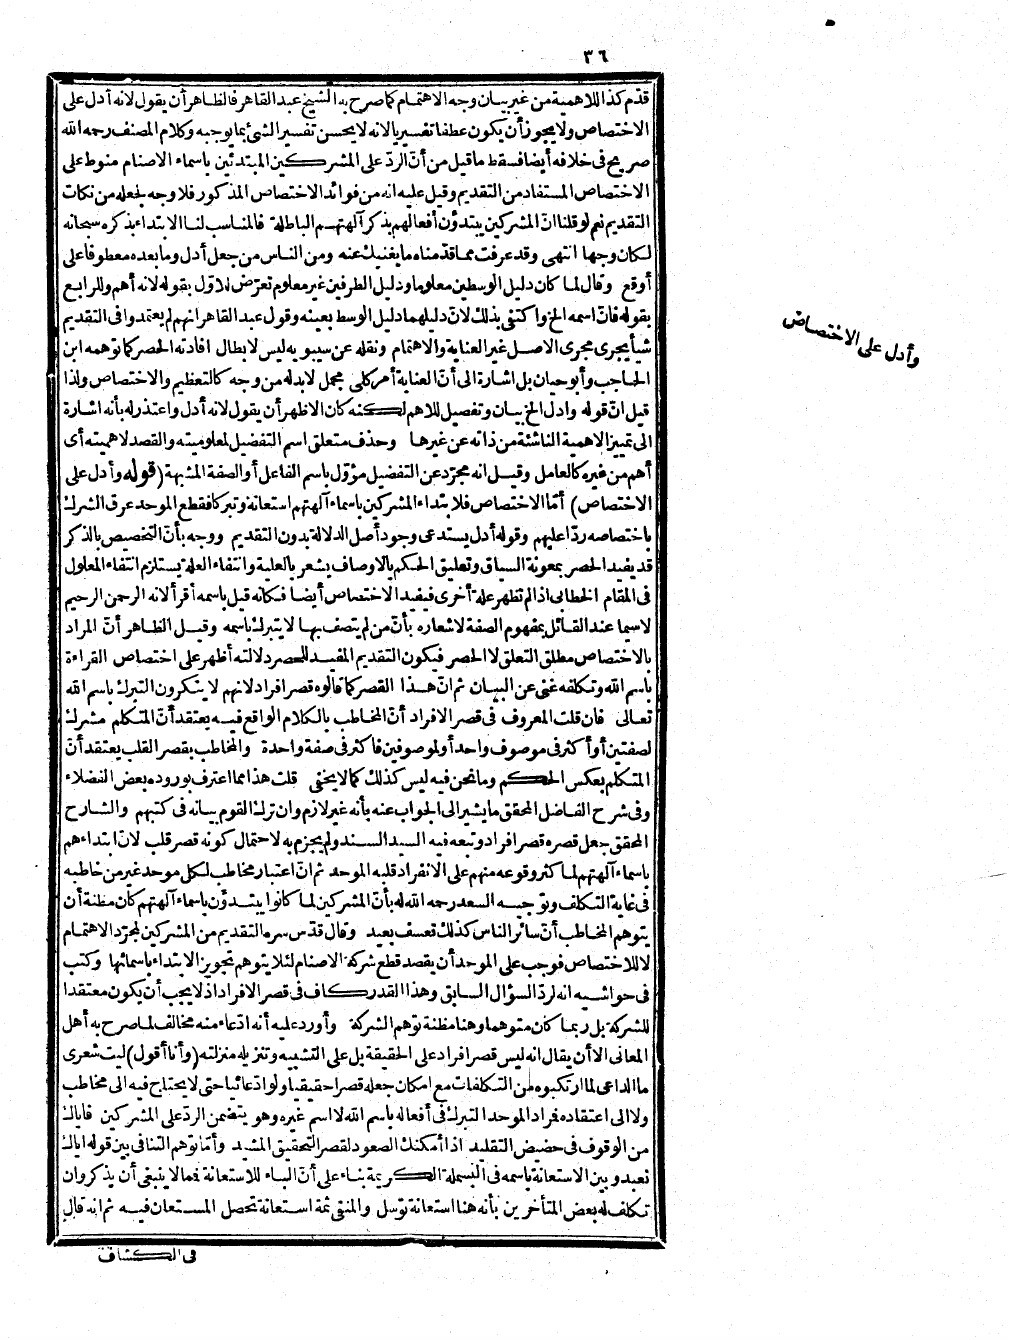 ٣٦
قدّم كذا للاهمية من غير بيان وجه الاهتمام كما صرح به الشيخ عبد القاهر فالظاهر أن يقول لانه أدل على
الاختصاص ولا يجوز أن يكون عطفا تفسيريا لانه لا يحسن تفسير الشئ بما يوجبه وكلام المصنف رحمه الله
صريح فى خلافه أيضا فسقط ما قيل من أنّ الردّ على المشركين المبتدئين باسماء الاصنام منوط على
الاختصاص المستفاد من التقديم وقيل عليه انه من فوائد الاختصاص المذكور فلا وجه لجعله من نكات
التقديم نعم لو قلنا انّ المشركين يبتدؤن أفعالهم بذكر آلهتهم الباطلة فالمناسب لنا الابتداء بذكره سبحانه
لكان وجها انتهى وقد عرفت مما قدمناه ما يغنيك عنه ومن الناس من جعل أدل وما بعده معطوفا على
أوقع وقال لما كان دليل الوسطين معلوما ودليل الطرفين غير معلوم تعرّض للاوّل بقوله لانه أهم وللرابع
بقوله فانّ اسمه الخ واكتفى بذلك لانّ دليلهما دليل الوسط بعينه وقول عبد القاهر انهم لم يعتمدوا فى التقديم
شيأ يجرى مجرى الاصل غير العناية والاهتمام ونقله عن سيبويه ليس لابطال افادته الحصر كما توهمه ابن
الحاجب وأبو حيان بل اشارة الى أنّ العناية أمر كلى مجمل لابد له من وجه كالتعظيم والاختصاص ولذا
قيل انّ قوله وادل الخ بيان وتفصيل للاهم لكنه كان الاظهر أن يقول لانه أدل واعتذر له بأنه اشارة
الى تمييز الاهمية الناشئة من ذاته عن غيرها وحذف متعلق اسم التفضيل لمعلوميته والقصد لاهميته أى
أهم من غيره كالعامل وقيل انه مجرّد عن التفضيل مؤوّل باسم الفاعل أو الصفة المشبهة (قوله وأدل على
الاختصاص) أمّا الاختصاص فلابتداء المشركين باسماء آلهتهم استعانة وتبركا فقطع الموحد عرق الشرك
باختصاصه ردّا عليهم وقوله أدل يستدعى وجود أصل الدلالة بدون التقديم ووجه بأنّ التخصيص بالذكر
قد يفيد الحصر بمعونة السياق وتعليق الحكم بالاوصاف يشعر بالعلية وانتفاء العلة يستلزم انتفاء المعلول
فى المقام الخطابى اذا لم تظهر علة أخرى فيفيد الاختصاص أيضا فكانه قيل باسمه أقرأ لانه الرحمن الرحيم
لاسيما عند القائل بمفهوم الصفة لاشعاره بأنّ من لم يتصف بها لا يتبرك باسمه وقيل الظاهر أنّ المراد
بالاختصاص مطلق التعلق لا الحصر فيكون التقديم المفيد للحصر دلالته أظهر على اختصاص القراءة
باسم الله وتكلفه غنى عن البيان ثم انّ هذا القصر كما قالوه قصر افراد لانهم لا ينكرون التبرك باسم الله
تعالى فان قلت المعروف فى قصر الافراد أنّ المخاطب بالكلام الواقع فيه يعتقد أنّ المتكلم مشرك
لصفتين أو أكثر فى موصوف واحد أو لموصوفين فاكثر فى صفة واحدة والمخاطب بقصر القلب يعتقد أنّ
المتكلم بعكس الحكم وما نحن فيه ليس كذلك كما لا يخفى قلت هذا مما اعترف بوروده بعض الفضلاء
وفى شرح الفاضل المحقق ما يشير الى الجواب عنه بأنه غير لازم وان ترك القوم بيانه فى كتبهم والشارح
المحقق جعل قصره قصر افراد وتبعه فيه السيد السند ولم يجزم به لاحتمال كونه قصر قلب لانّ ابتداءهم
باسماء آلهتهم لما كثر وقوعه منهم على الانفراد قلبه الموحد ثم انّ اعتبار مخاطب لكل موحد غير من خاطبه
فى غاية التكلف وتوجيه السعد رحمه الله له بأنّ المشركين لما كانوا يبتدؤن باسماء آلهتهم كان مظنة أن
يتوهم المخاطب أنّ سائر الناس كذلك تعسف بعيد وقال قدّس سره التقديم من المشركين لمجرّد الاهتمام
لا للاختصاص فوجب على الموحد أن يقصد قطع شركة الاصنام لئلا يتوهم تجويز الابتداء باسمائها وكتب
فى حواشيه انه لردّ السؤال السابق وهذا القدر كاف فى قصر الافراد اذ لا يجب أن يكون معتقدا
للشركة بل ربما كان متوهما وهنا مظنة توهم الشركة وأورد عليه أنه ادّعاء منه مخالف لما صرح به أهل
المعانى الا أن يقال انه ليس قصر افراد على الحقيقة بل على التشبيه وتنزيله منزلته (وأنا أقول) ليت شعرى
ما الداعى لما ارتكبوه من التكلفات مع امكان جعله قصرا حقيقيا ولو ادّعائيا حتى لا يحتاج فيه الى مخاطب
ولا الى اعتقاده فمراد الموحد التبرك فى أفعاله باسم الله لا اسم غيره وهو يتضمن الردّ على المشركين فاياك
من الوقوف فى حضيض التقليد اذا أمكنك الصعود لقصر التحقيق المشيد وأمّا توهم التنافى بين قوله اياك
نعبد وبين الاستعانة باسمه فى البسملة الكريمة بناء على أنّ الباء للاستعانة فمما لا ينبغى أن يذكر وان
تكلف له بعض المتأخرين بأنه هنا استعانة توسل والمنفى ثمة استعانة تحصل المستعان فيه ثم انه قال
فى الكشاف
وأدل على الاختصاص